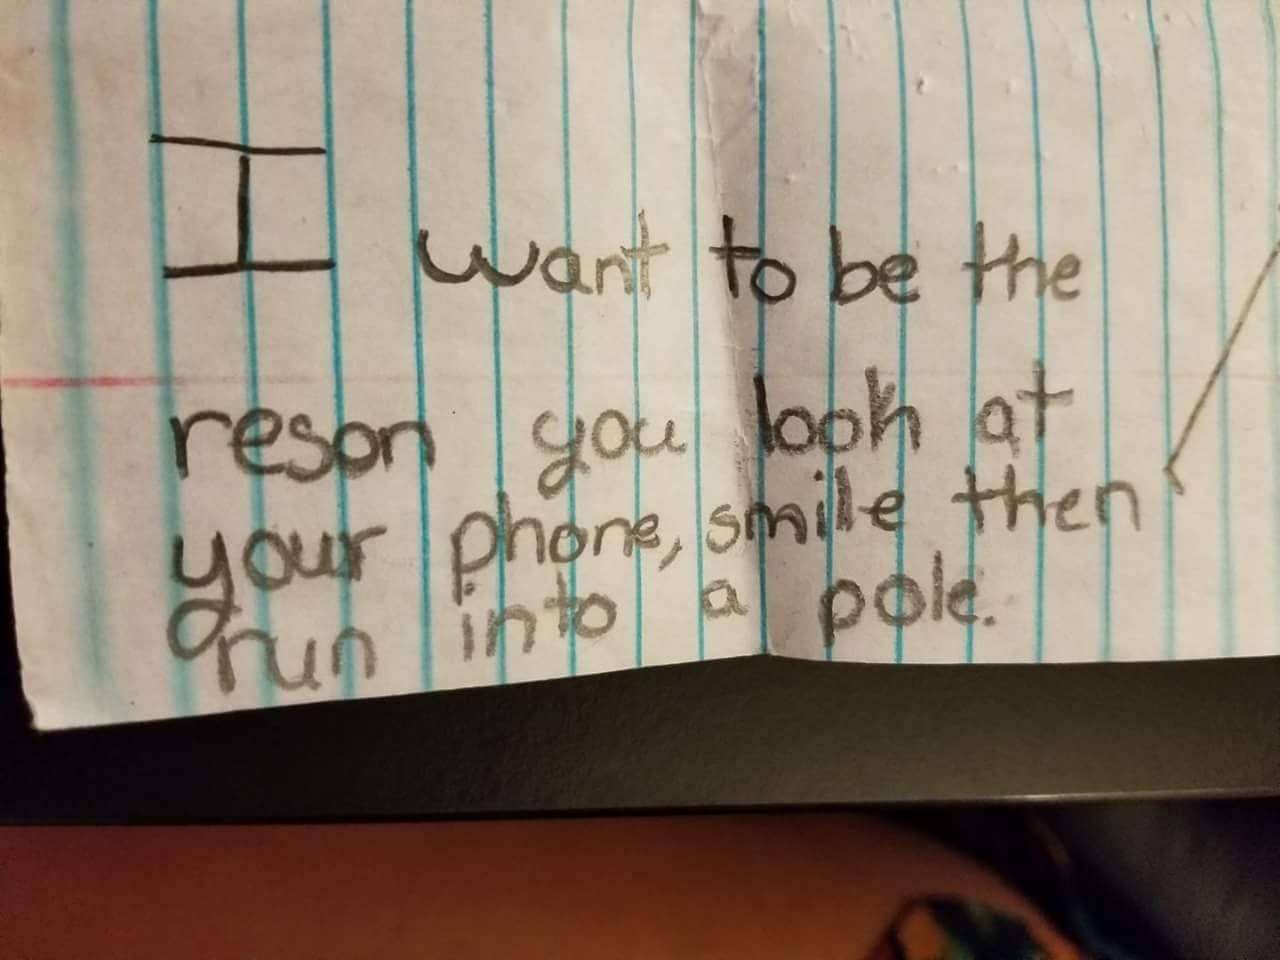 I want to be the
reson you look at
your phone, smile then
run into a pole.